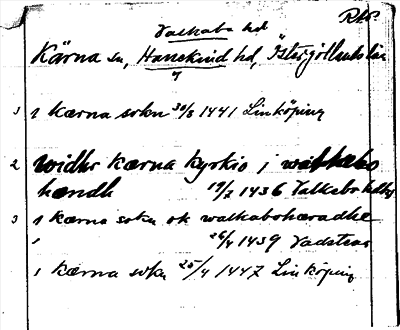 Rbr.
Valkebo hd
Kärna sn, Hanekind hd, Östergötlands län
3 i kærna sokn 30/8 1441 Linköping
2 widhr kærna kyrkio i
hændh 19/7 1436
3 i kærna sokn ok walkaboheradhe
" 26/4 1439 Vadstena
i kærna sokn 25/4 1447 Linköping